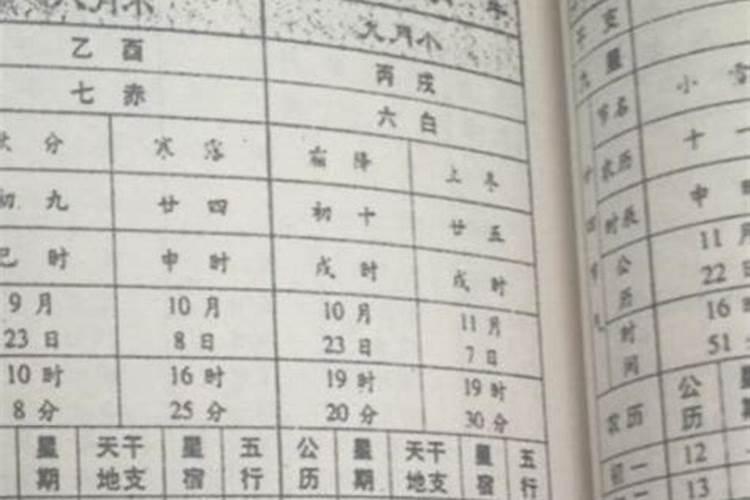 九月小
乙酉 丙戌
七赤 六白
分 寒露 霜降 立冬
初九 廿四 初十 廿五
巳时 申时 戌时 戌时
9月 10月 10月 11月
23日 8日 23日 7日
10时 16时 19时 19时
8分 25分 20分 30分
星期 天干地支 星宿 五行 公历 星期 天干地支 星宿 五行
干支
九星
节名 小雪
农历 十一
时辰 申时
公历 11月
22日
时间 16
51
农历 公历
初一 12
13